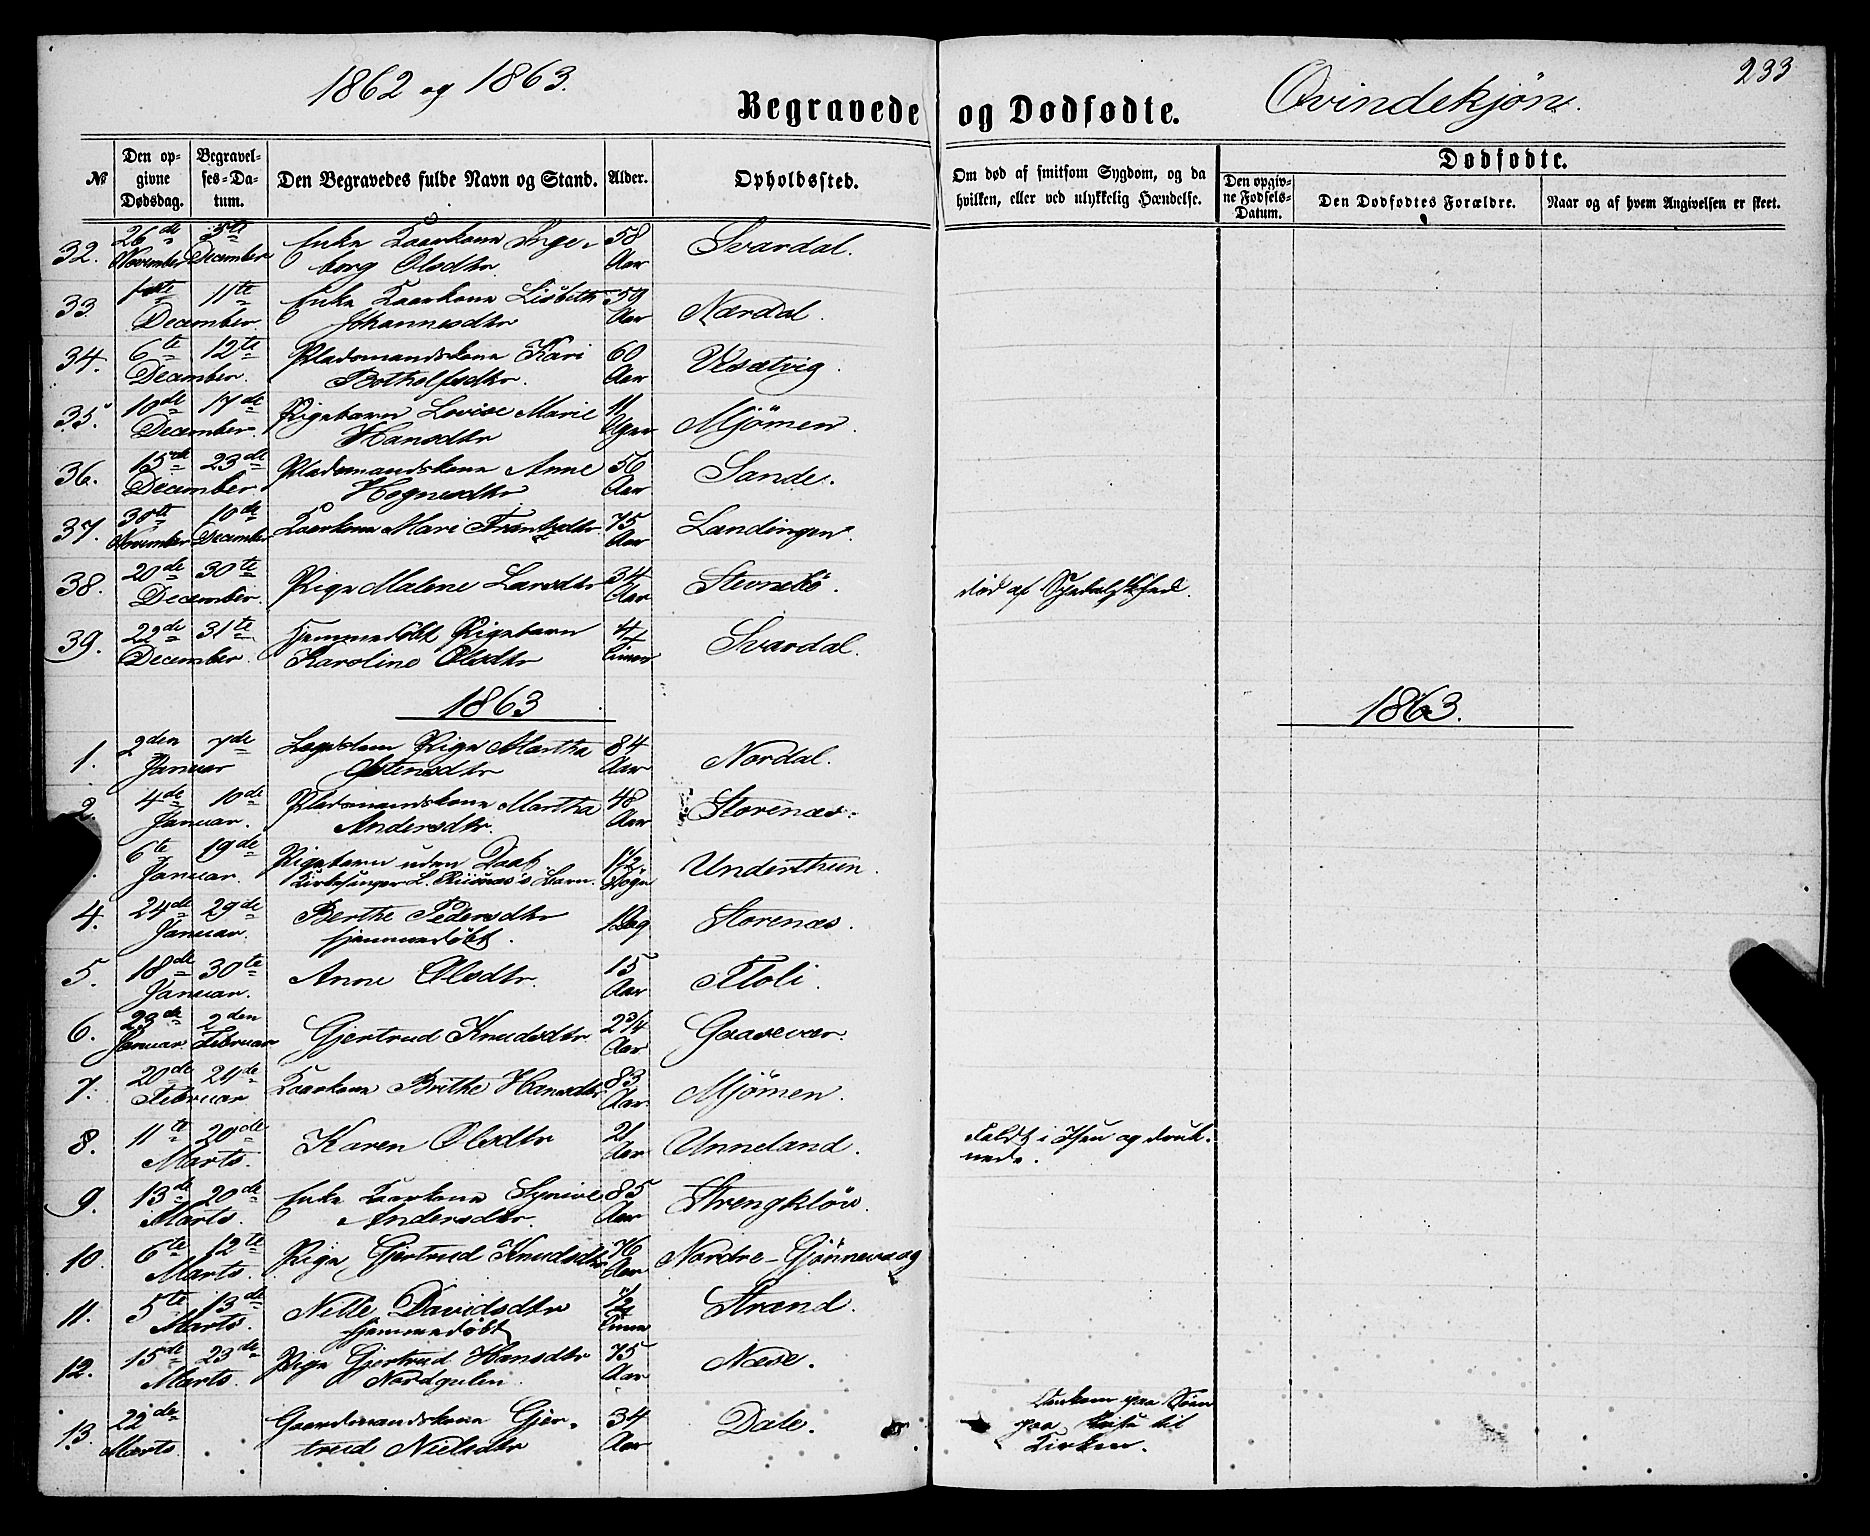 1862 og 1863.
233
Begravede og Dödfödte.
Qvindekjön.
No
Den op-
givne
Dødsdag.
Begravel-
ses-Da-
tum.
Den Begravedes fulde Navn og Stand.
Alder.
Opholdssted.
Om død af smitsom Sygdom, og da
hvilken, eller ved ulykkelig Hændelse.
Dödfödte.
Den opgiv-
ne Fødsels-
Datum.
Den Dödfödtes Forældre.
Naar og af hvem Angivelsen er skeet.
32. 26de November 5te December Enke Kaarkone Inge- 58 Aar Svardal.
borg Olsdtr
33. 1ste 11te December. Enke Kaarkone Lisbeth 59 Aar Nærdal.
Johannesdtr
34. 6te 12te December. Pladsmandskone Kari 60 Aar
Botholfsdtr.
35. 10de 17de December. Pigebarn Lovise Marie 11 Uger Mjømen.
Hansdtr
36. 15de 23de December. Pladsmandskone Anne 56 Aar Sande.
Hognesdtr
37. 30te November 10de December Kaarkone Mari Frantzdtr. 75 Aar Landingen.
38. 20de 30te December. Pige Malene Larsdtr 34 Aar Stevnebø. død af
39. 22de 31te December. Hjemmedøbt Pigebarn 4 Timer Svardal.
Karoline Olsdtr
1863
1863.
1. 2den 7de Januar Pige Martha 84 Aar Nordal.
Ostensdtr
2. 4de 10de Januar. Pladsmandskone Martha 48 Aar Storenæs.
Andersdtr.
6te 19de Januar. Pigebarn uden Daab 1 1/2 Døgn Underthun.
Kirkesanger L. Riisnæs's Barn.
4. 24de 29de Januar. Berthe Pedersdtr 1 Dag Storenæs.
hjemmedøbt.
5. 18de 30te Januar. Anne Olsdtr. 15 Aar Floli.
6. 23de Januar. 2den Februar Gjertrud Knudsdtr 2 3/4 Aar Gaasevær.
7. 20de 24de Februar Kaarkone Brithe Hansdtr 83 Aar. Mjømen.
8. 11te 20de Marts. Karen Olsdtr 21 Aar Unneland. Faldt i Isen og druk-
nede.
9. 13de 20de Marts. Enke Kaarkone Synive 85 Aar Strengkløv.
Andersdtr.
10. 6te 12te Marts. Pige Gjertrud Knudsdtr 76 Aar Nordre-Gjønnevaag
11. 5te 13de Marts. Nille Davidsdtr 1/2 Time Strand.
hjemmedøbt
12. 15de 23de Marts. Pige Gjertrud Hansdtr 75 Aar Næse.
Nordgulen.
13. 22de Marts. Gaardmandskone Gjer- 34 Aar Dale. Omkom paa Søen
trud Nielsdtr paa Reise til
Kirken.